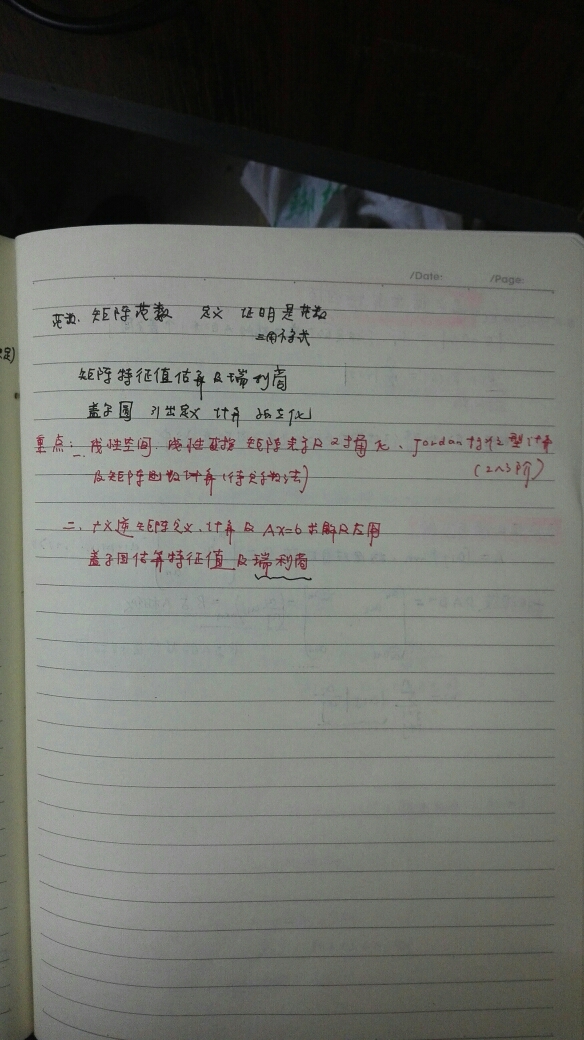 /Date: /Page:
范数. 矩阵范数 定义 证明是范数
三角不等式
矩阵特征值估算及瑞利商
盖尔圆 引出定义 计算 孤立化
定)
重点: 一、线性空间、线性 矩阵 及 对角元、Jordan 标准型计算
(2∧3阶)
及矩阵函数计算(待定系数法)
二、广义逆矩阵定义、计算及AX=b求解及应用
盖尔圆估算特征值及瑞利商